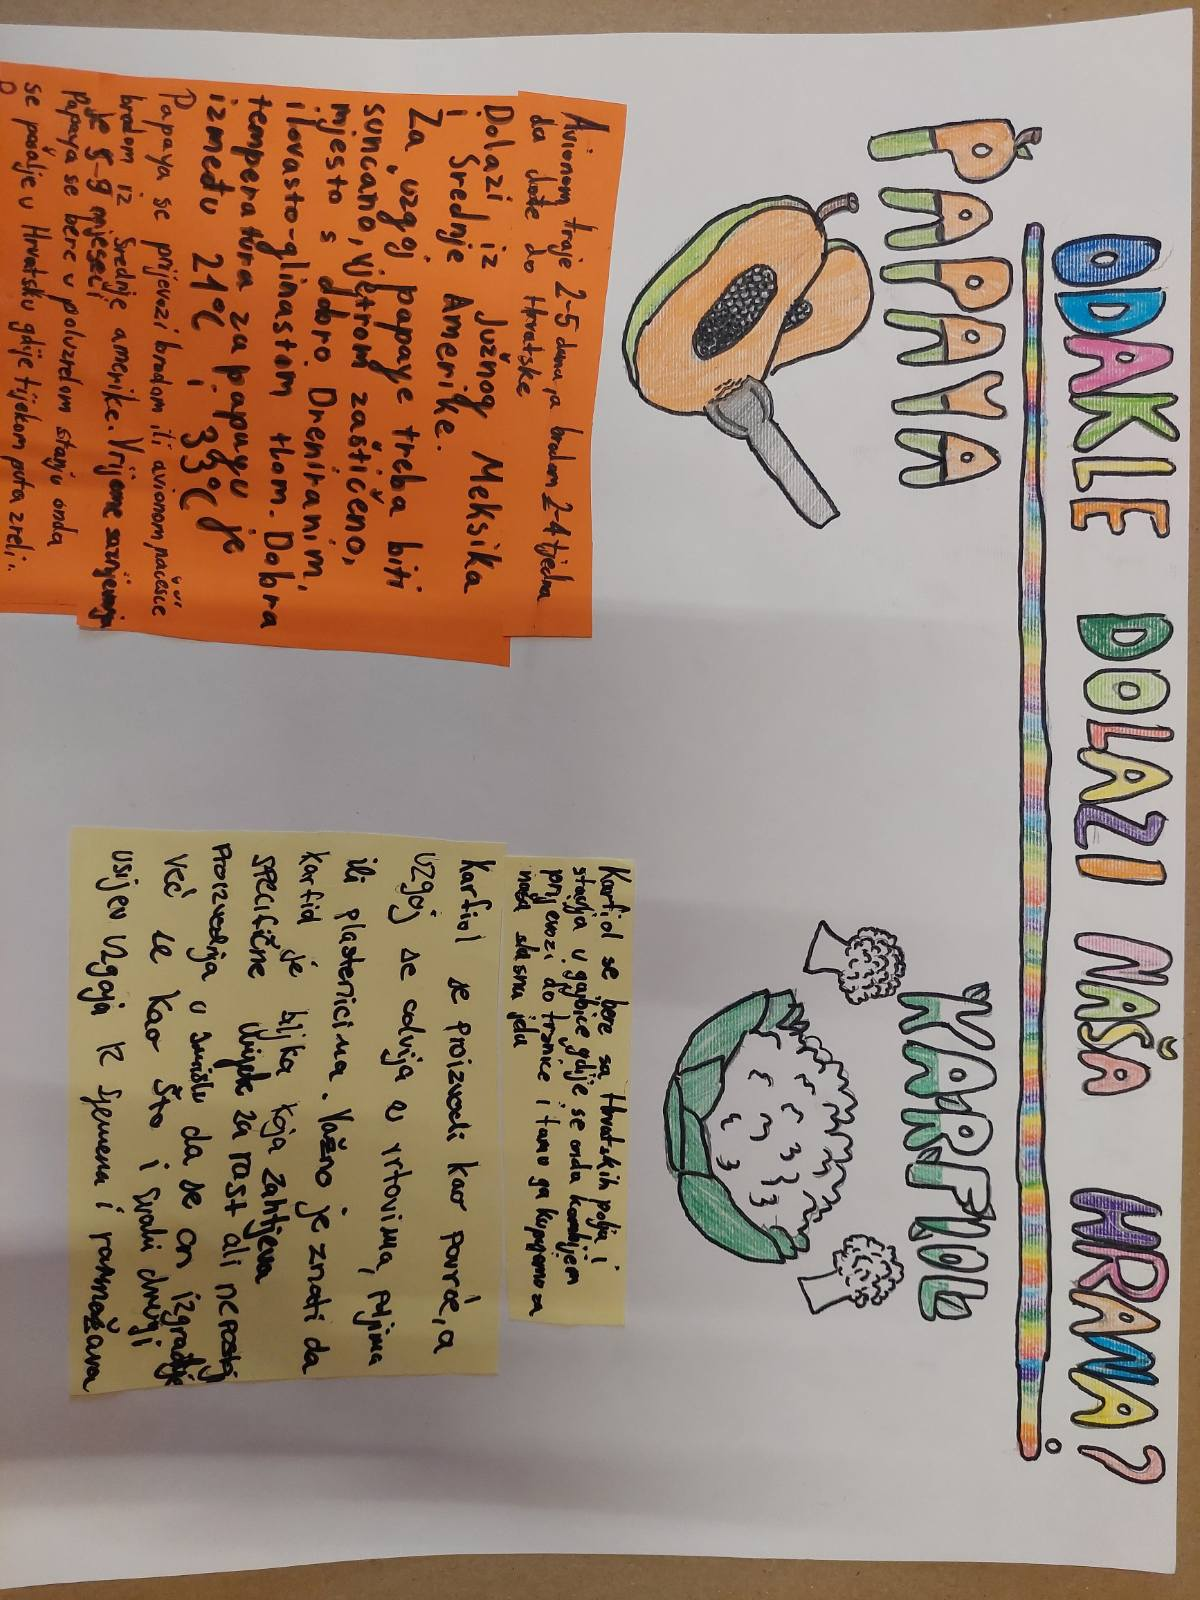 ODAKLE DOLAZI NAŠA HRANA?
PAPAYA
Avionom traje 2-5 dana, a brodom 2-4 tjedna
da dođe do Hrvatske
Dolazi iz Južnog Meksika
i Srednje Amerike.
Za uzgoj papaye treba biti
sunčano, vjetrom zaštićeno,
mjesto s dobro Dreniranim,
ilovasto-glinastom tlom. Dobra
temperatura za papayu je
između 21°C i 33°C
Papaya se prijevozi brodom ili avionom najčešće
brodom iz Srednje amerike. Vrijeme sazrijevanja
je 5-9 mjeseci
papaya se bere u poluzrelom stanju onda
se pošalje u Hrvatsku gdije tijekom puta zreli.
KARFIOL
Karfiol se bere sa Hrvatskih polja i
stavlja u gajbice gdije se onda kombijem
prijevozi do tržnice i tamo ga kupujemo za
naša slasna jela
Karfiol se proizvodi kao povrće, a
uzgoj se odvija u vrtovima, poljima
ili plastenicima. Važno je znati da
karfiol je biljka koja zahtjeva
specifične uvijete za rast ali ne postoji
proizvodnja u smislu da se on izgrađuje
već se kao što i svaki drugi
usijev uzgaja iz sjemena i razmnožava